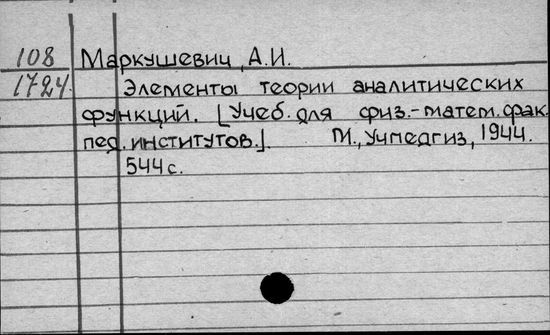 108 Маркушевич, А.И.
1724 Элементы теории аналитических
функций. [Учеб. для физ.-матем. фак.
пед. институтов.] М., Учпедгиз, 1944.
544 с.